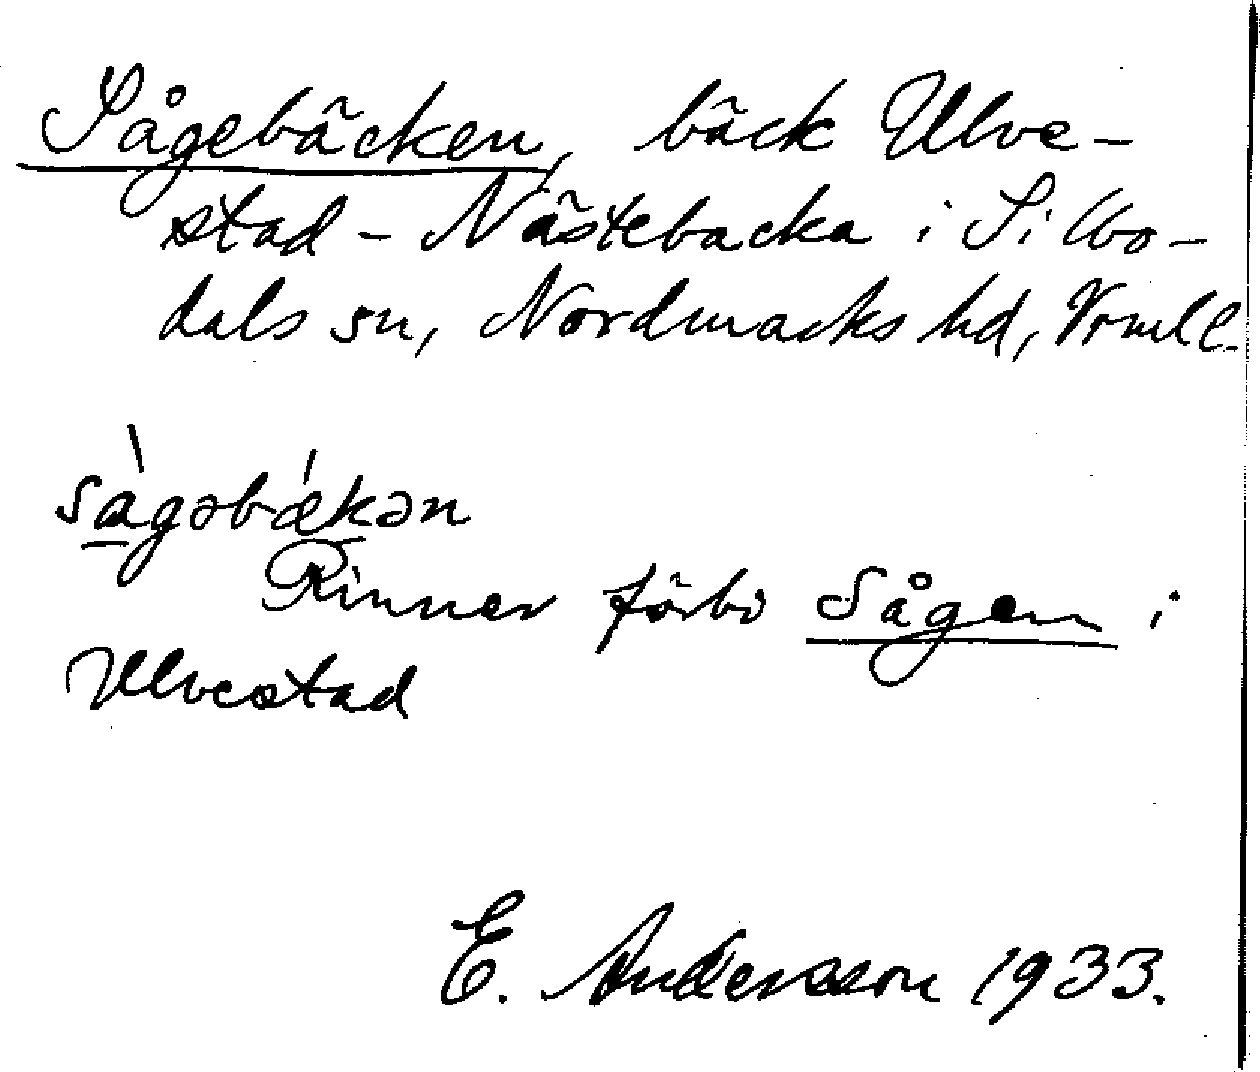 Sågebäcken, bäck Ulve-
stad - Nästebacka i Silbo-
dals sn, Nordmarks hd, Vrmll.
sågəbækən
Rinner förbi Sågen i
Ulvestad
E. Andersson 1933.